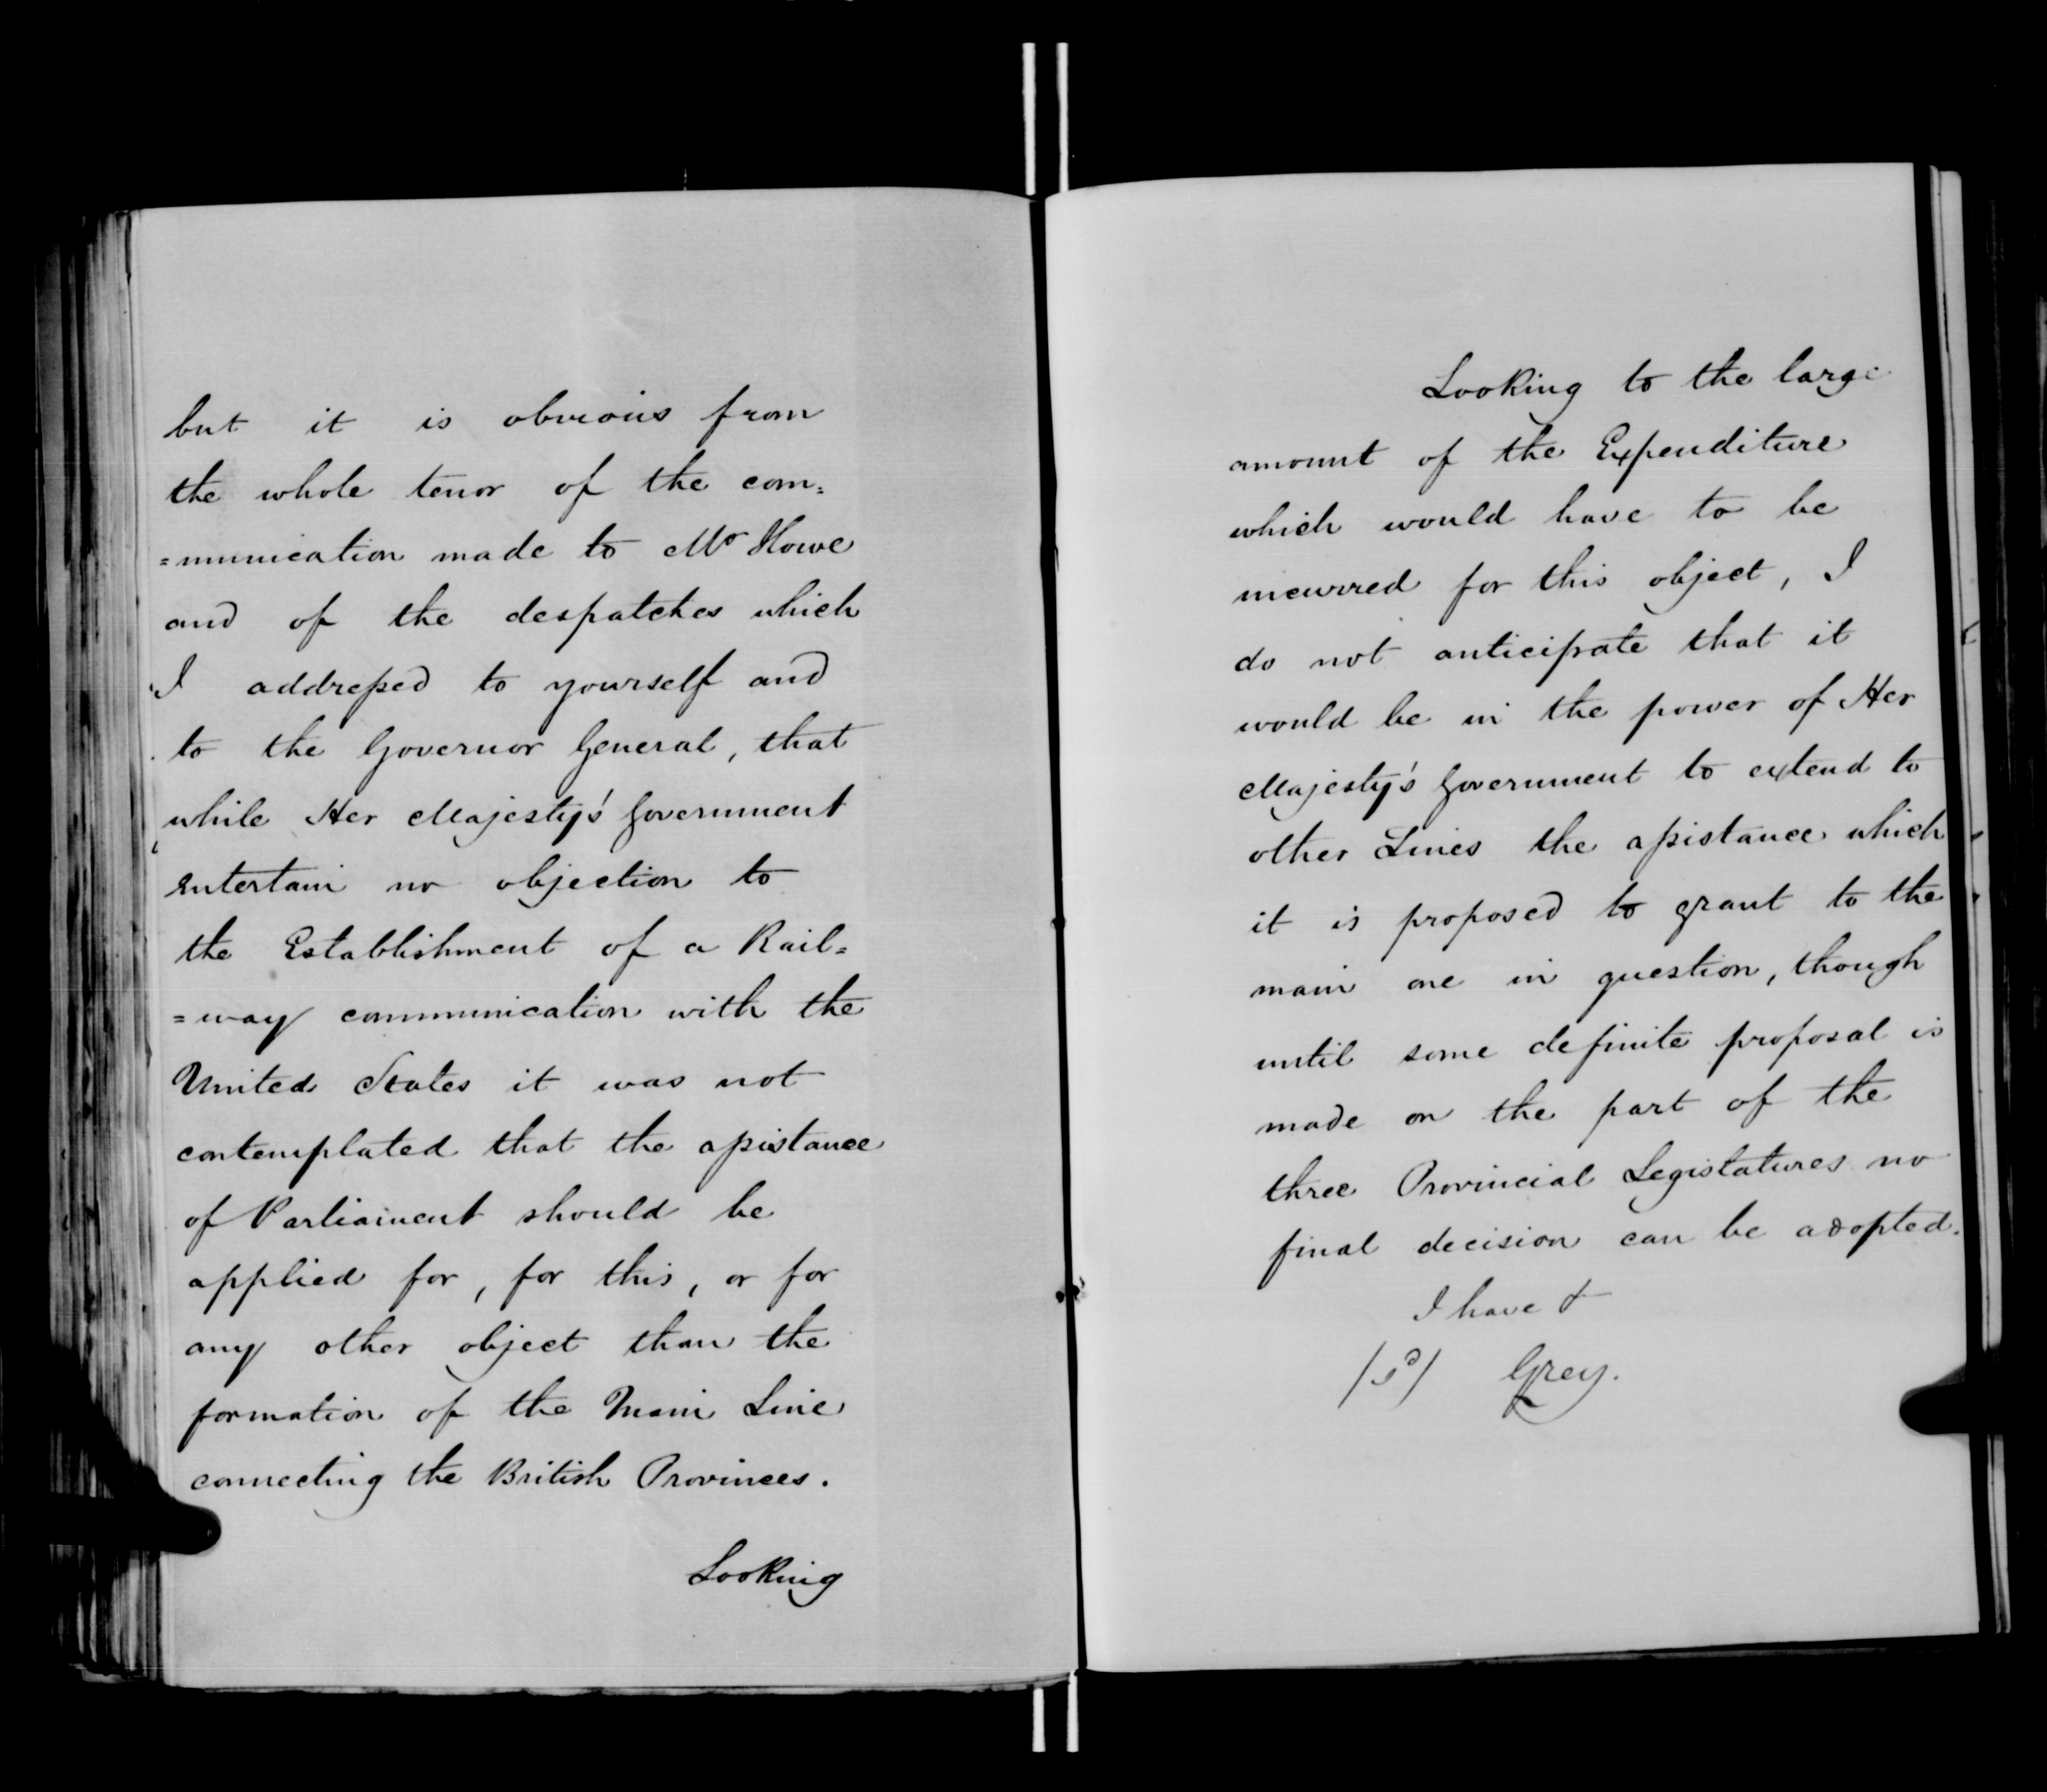 but it is obvious from
the whole tenor of the com=
=munication made to Mr Howe
and of the despatches which
I addressed to yourself and
to the Governor General, that
while Her Majesty's Government
entertain no objection to
the Establishment of a Rail=
=way communication with the
United States it was not
contemplated that the assistance
of Parliament should be
applied for, for this, or for
any other object than the
formation of the Main Line
connecting the British Provinces.
Looking
Looking to the large
amount of the Expenditure
which would have to be
incurred for this object, I
do not anticipate that it
would be in the power of Her
Majesty's Government to extend to
other Lines the assistance which
it is proposed to grant to the
main one in question, though
until some definite proposal is
made on the part of the
three Provincial Legislatures no
final decision can be adopted.
I have &
/sd/ Grey.